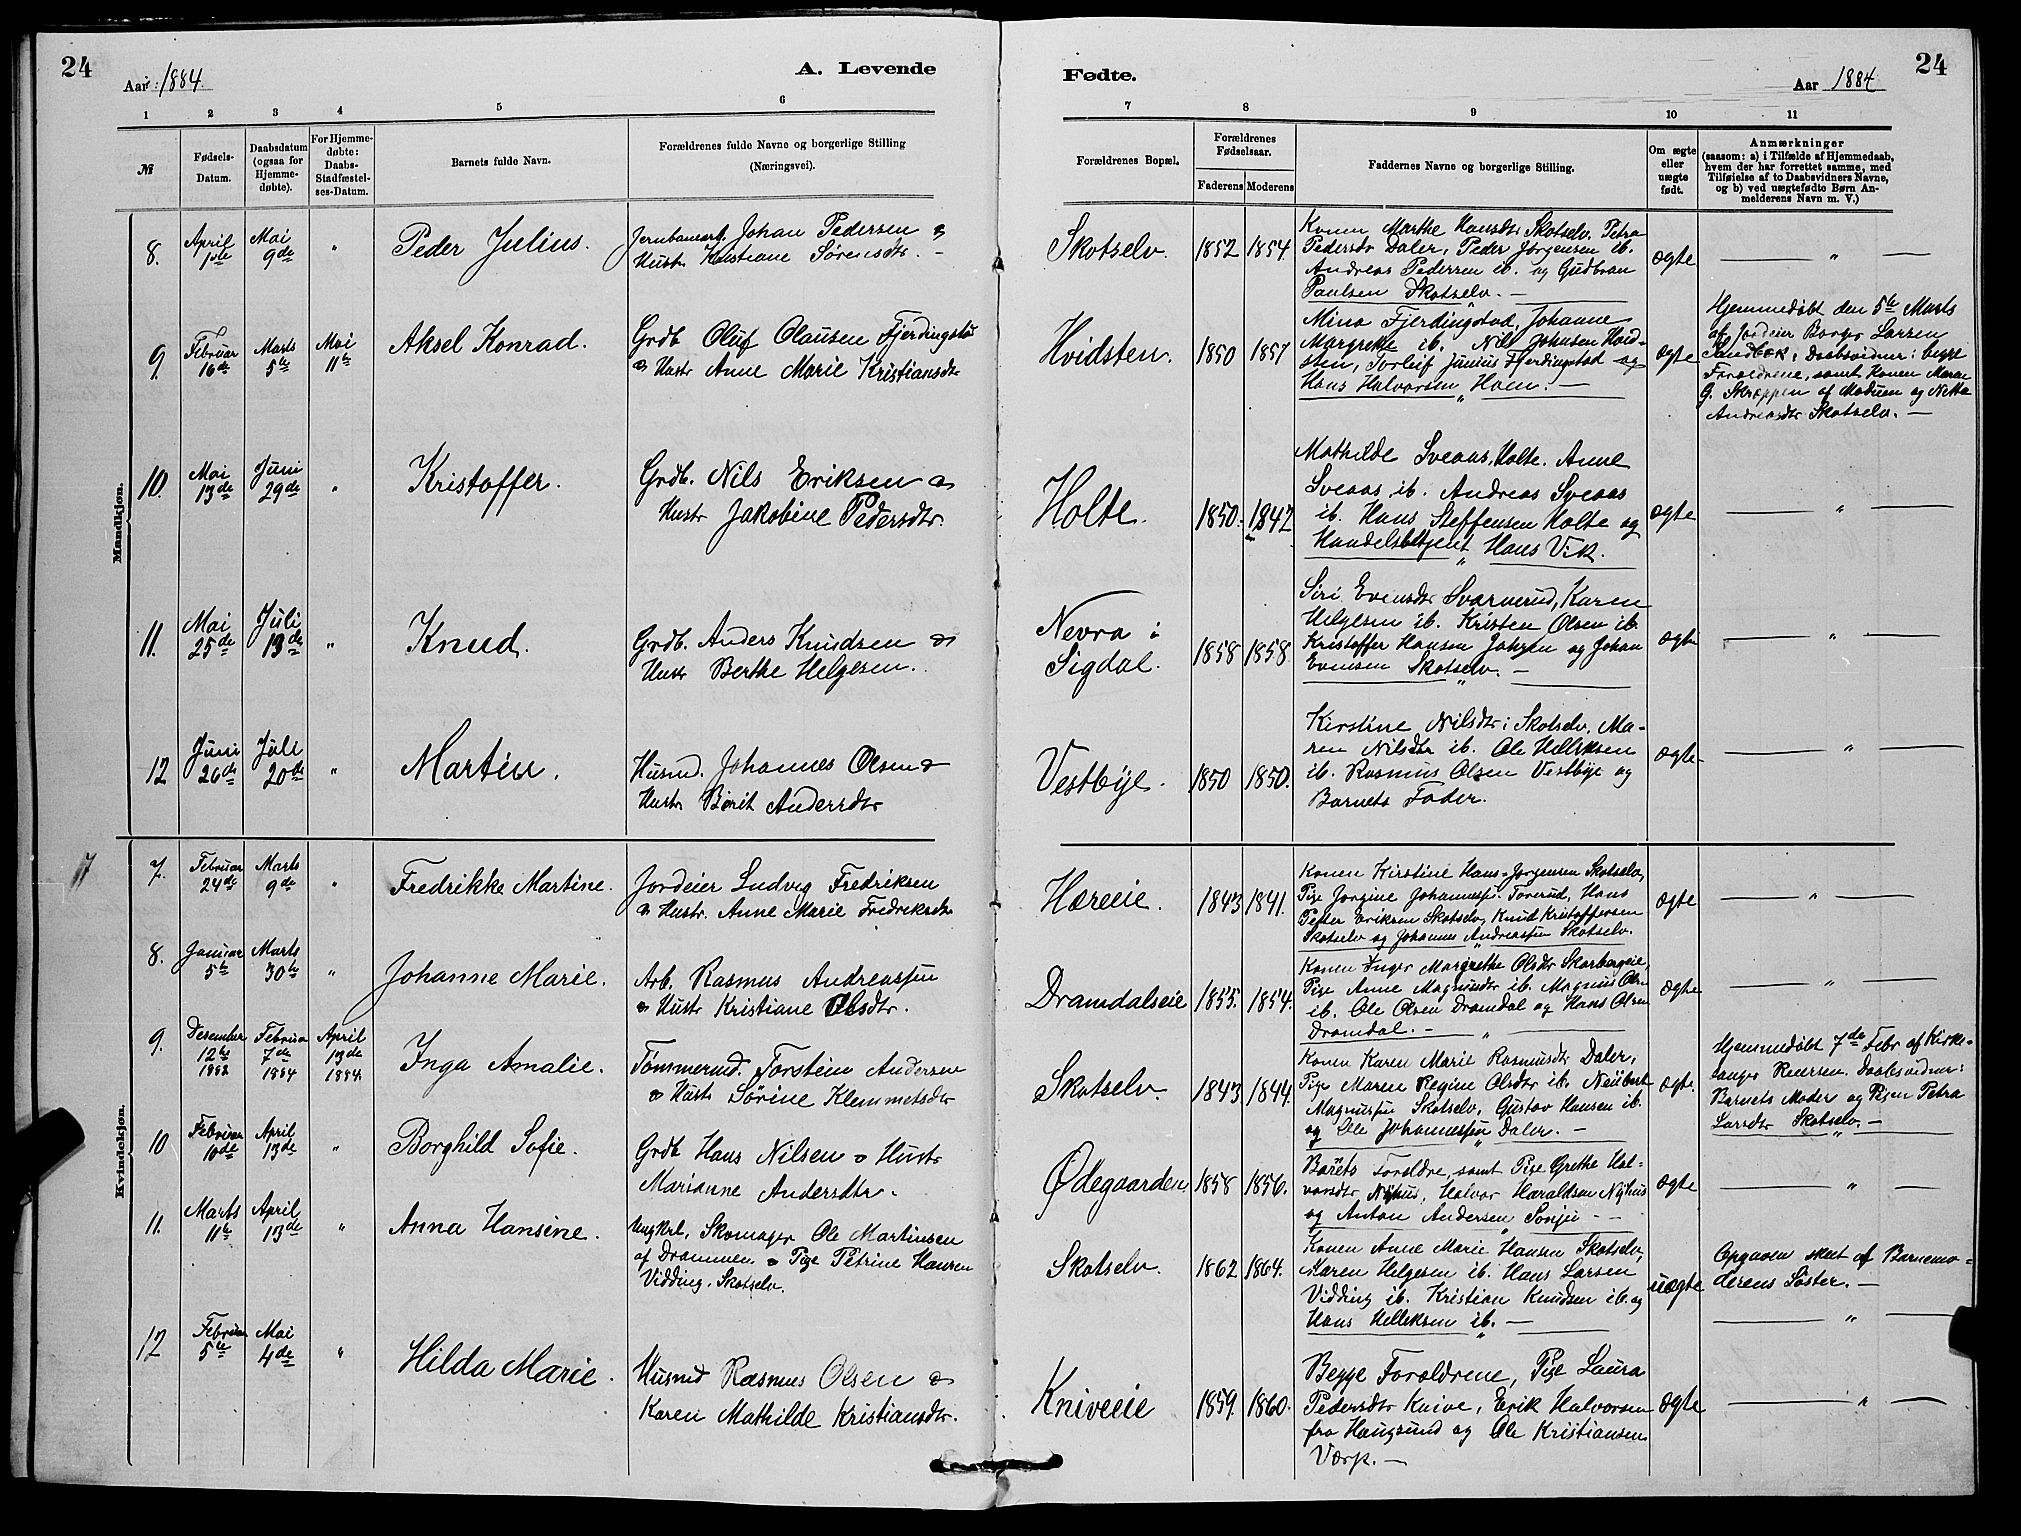 24
Aar 1884.
A. Levende
1 2 3 4 5 6
№
Fødsels-
Datum.
Daabsdatum
(ogsaa for
Hjemme-
døbte).
For Hjemme-
døbte:
Daabs-
Stadfæstel-
ses-Datum.
Barnets fulde Navn.
Forældrenes fulde Navne og borgerlige Stilling
(Næringsvei).
Fødte.
Aar 1884
24
7 8 9 10 11
Forældrenes Bopæl.
Forældrenes
Fødselsaar.
Faderens Moderens
Faddernes Navne og borgerlige Stilling.
Om ægte
eller
uægte
født.
Anmærkninger
(saasom: a) i Tilfælde af Hjemmedaab,
hvem der har forrettet samme, med
Tilføielse af to Daabsvidners Navne,
og b) ved uægtefødte Børn An-
melderens Navn m. V.)
Mandkjøn.
8.
April
1ste
Mai
9de
"
Peder Julius.
Jernbanearb. Johan Pedersen &
Hustr. Kristiane Sørensdtr. -
Skotselv.
1852
1854
Konen Marthe Hansdtr Skotselv, Petra
Pedersdtr Daler, Peder Jørgensen ib.
Andreas Pedersen ib. og Gudbran
Paulsen Skotselv. —
ægte
— " —
9.
Februar
16de
Marts
5te
Mai
11te
Aksel Konrad.
Grdb Oluf Olausen Fjerdingstad
& Hustr Anne Marie Kristiansdtr
Hvidsten.
1850
1857
Mina Fjerdingstad, Johanne
Margrethe ib. Nils Johnsen Hvid-
sten, Torleif Junius Fjerdingstad og
Hans Halvorsen Hoen. —
ægte
Hjemmedøbt den 5te Marts
af Jordeier Borger Larsen
Sandbæk, Daabsvidner: begge
Forældrene, samt Konen Maren
G. Skroppen af Modum og Netta
Andreasdtr Skotselv. —
10.
Mai
13de
Juni
29de
"
Kristoffer.
Grdb. Nils Eriksen &
Hustr Jakobine Pedersdtr.
Holte.
1850.
1847
Mathilde Sveaas, Holte. Anne
Sveaas ib. Andreas Sveaas
ib. Hans Steffensen Holte og
Handelsbetjent Hans Vik.
ægte
— " —
11.
Mai
25de
Juli
13de
"
Knud.
Grdb. Anders Knudsen &
Hustr Berthe Helgesen.
Nevra i
Sigdal.
1858
1858
Siri Evensdtr Svarverud, Karen
Helgesen ib. Kristen Olsen ib.
Kristoffer Hansen Johren og Johan
Evensen Skotselv. —
ægte
— " —
12
Juni
26de
Juli
20de
"
Martin.
Husmd. Johannes Olsen &
Hustr Børit Andersdtr
Vestbye.
1850
1850.
Kirstine Nilsdtr: Skotselv, Ma-
ren Nilsdtr ib. Ole Helliksen
ib. Rasmus Olsen Vestbye og
Barnets Fader.
ægte
— " —
Kvindekjøn.
7.
Februar
24de
Marts
9de
"
Fredrikke Martine.
Jordeier Ludvig Fredriksen
& Hustr. Anne Marie Fredriksdtr
Hæreie.
1843
1841.
Konen Kirstine Hans-Jørgensen Skotselv,
Pige Jørgine Johannessen Foverud, Hans
Petter Eriksen Skotselv, Knud Kristoffersen
Skotselv og Johannes Andreassen Skotselv.
ægte
— " —
8.
Januar
5te
Marts
30te
"
Johanne Marie.
Arb. Rasmus Andreassen
& Hustr Kristiane Olsdtr.
Dramdalseie
1855.
1854.
Konen Inger Margrethe Olsdtr Skarbergeie,
Pige Anne Magnusdtr ib. Magnus Olsen
ib. Ole Olsen Dramdal og Hans Olsen
Dramdal. —
ægte
— " —
9.
Desember
12te
1883
Februar
7de
1884
April
13de
1884.
Inga Amalie.
Tømmermd. Torstein Andersen
& Hustr Sørine Klemmetsdtr
Skotselv.
1843
1844.
Konen Karen Marie Rasmusdtr Daler,
Pige Maren Regine Olsdtr ib. Neubert
Magnussen Skotselv, Gustav Hansen ib.
og Ole Johannessen Daler. —
ægte.
Hjemmedøbt 7de Febr af Kirke-
sanger Reiersen. Daabsvidner:
Barnets Moder og Pigen Petra
Larsdtr Skotselv. —
10
Februar
10de
April
13de
"
Borghild Sofie.
Grdb Hans Nilsen & Hustr
Marianne Andersdtr.
Ødegaarden
1858
1856.
Barnets Forældre, samt Pige Grethe Hal-
vorsdtr Nyhus, Halvor Haraldsen Nyhus
og Anton Andersen Sonju —
ægte
— " —
11.
Marts
11te
April
13de
"
Anna Hansine.
Ungkrl. Skomager Ole Martinsen
af Drammen & Pige Petrine Hansen
Vidding, Skotselv.
Skotselv.
1862
1864.
Konen Anne Marie Hansen Skotselv,
Karen Helgesen ib. Hans Larsen
Vidding ib. Kristian Knudsen ib. og
Hans Helliksen ib. —
uægte
Opgaven skeet af Barnemo-
derens Søster. —
— " —
12
Februar
5te
Mai
4de
"
Hilda Marie.
Husmd Rasmus Olsen &
Karen Mathilde Kristiansdtr.
Kniveeie
1859.
1860.
Begge Forældrene, Pige Laura
Pedersdtr Knive, Erik Halvorsen
fra Haugsund og Ole Kristiansen
Værp. —
ægte
— " —